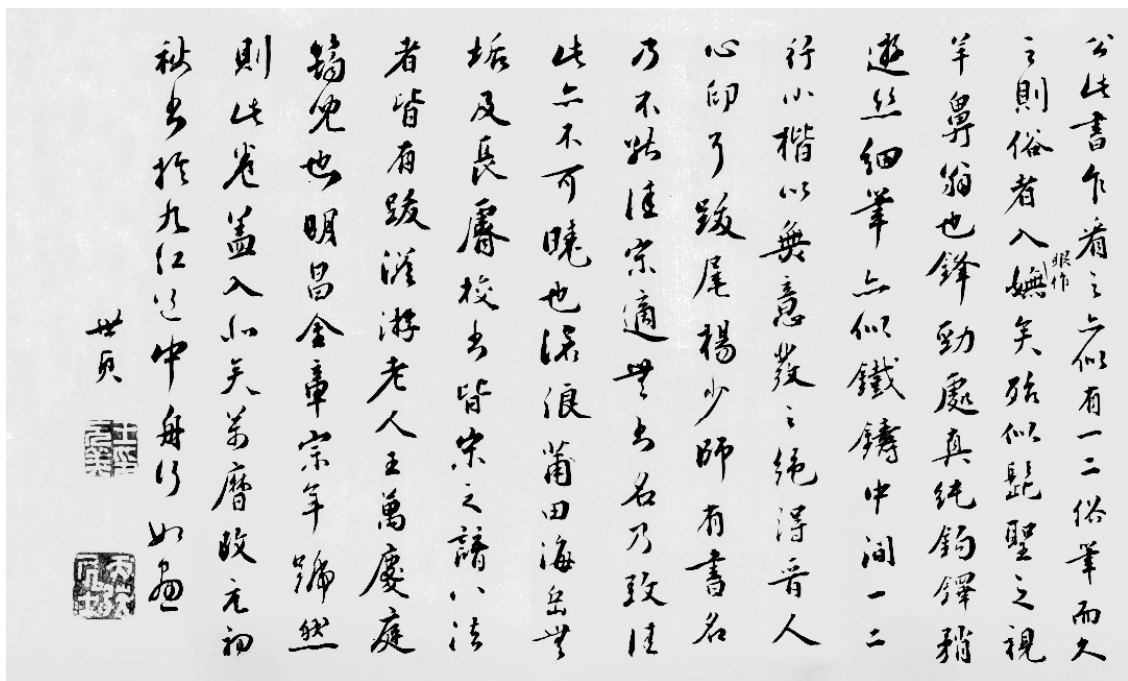 公此書乍看之亦似有一二俗筆而久
之則俗者入嫵矣殆似髭聖之視
眼作
羊鼻翁也鋒勁處真純鉤鐸矟
遊丝細筆亦似鐵鑄中間一二
行小楷以無意發之絕得晉人
心印了跋尾楊少師有書名
乃不能佳宋適無書名乃致佳
此亦不可曉也滄浪莆田海岳無
垢及長睿校書皆宋之諳八法
者皆有跋澹游老人王萬慶庭
筠兒也明昌金章宗年號然
則此卷蓋入北矣萬曆改元初
秋書於九江道中舟行如画
世貞